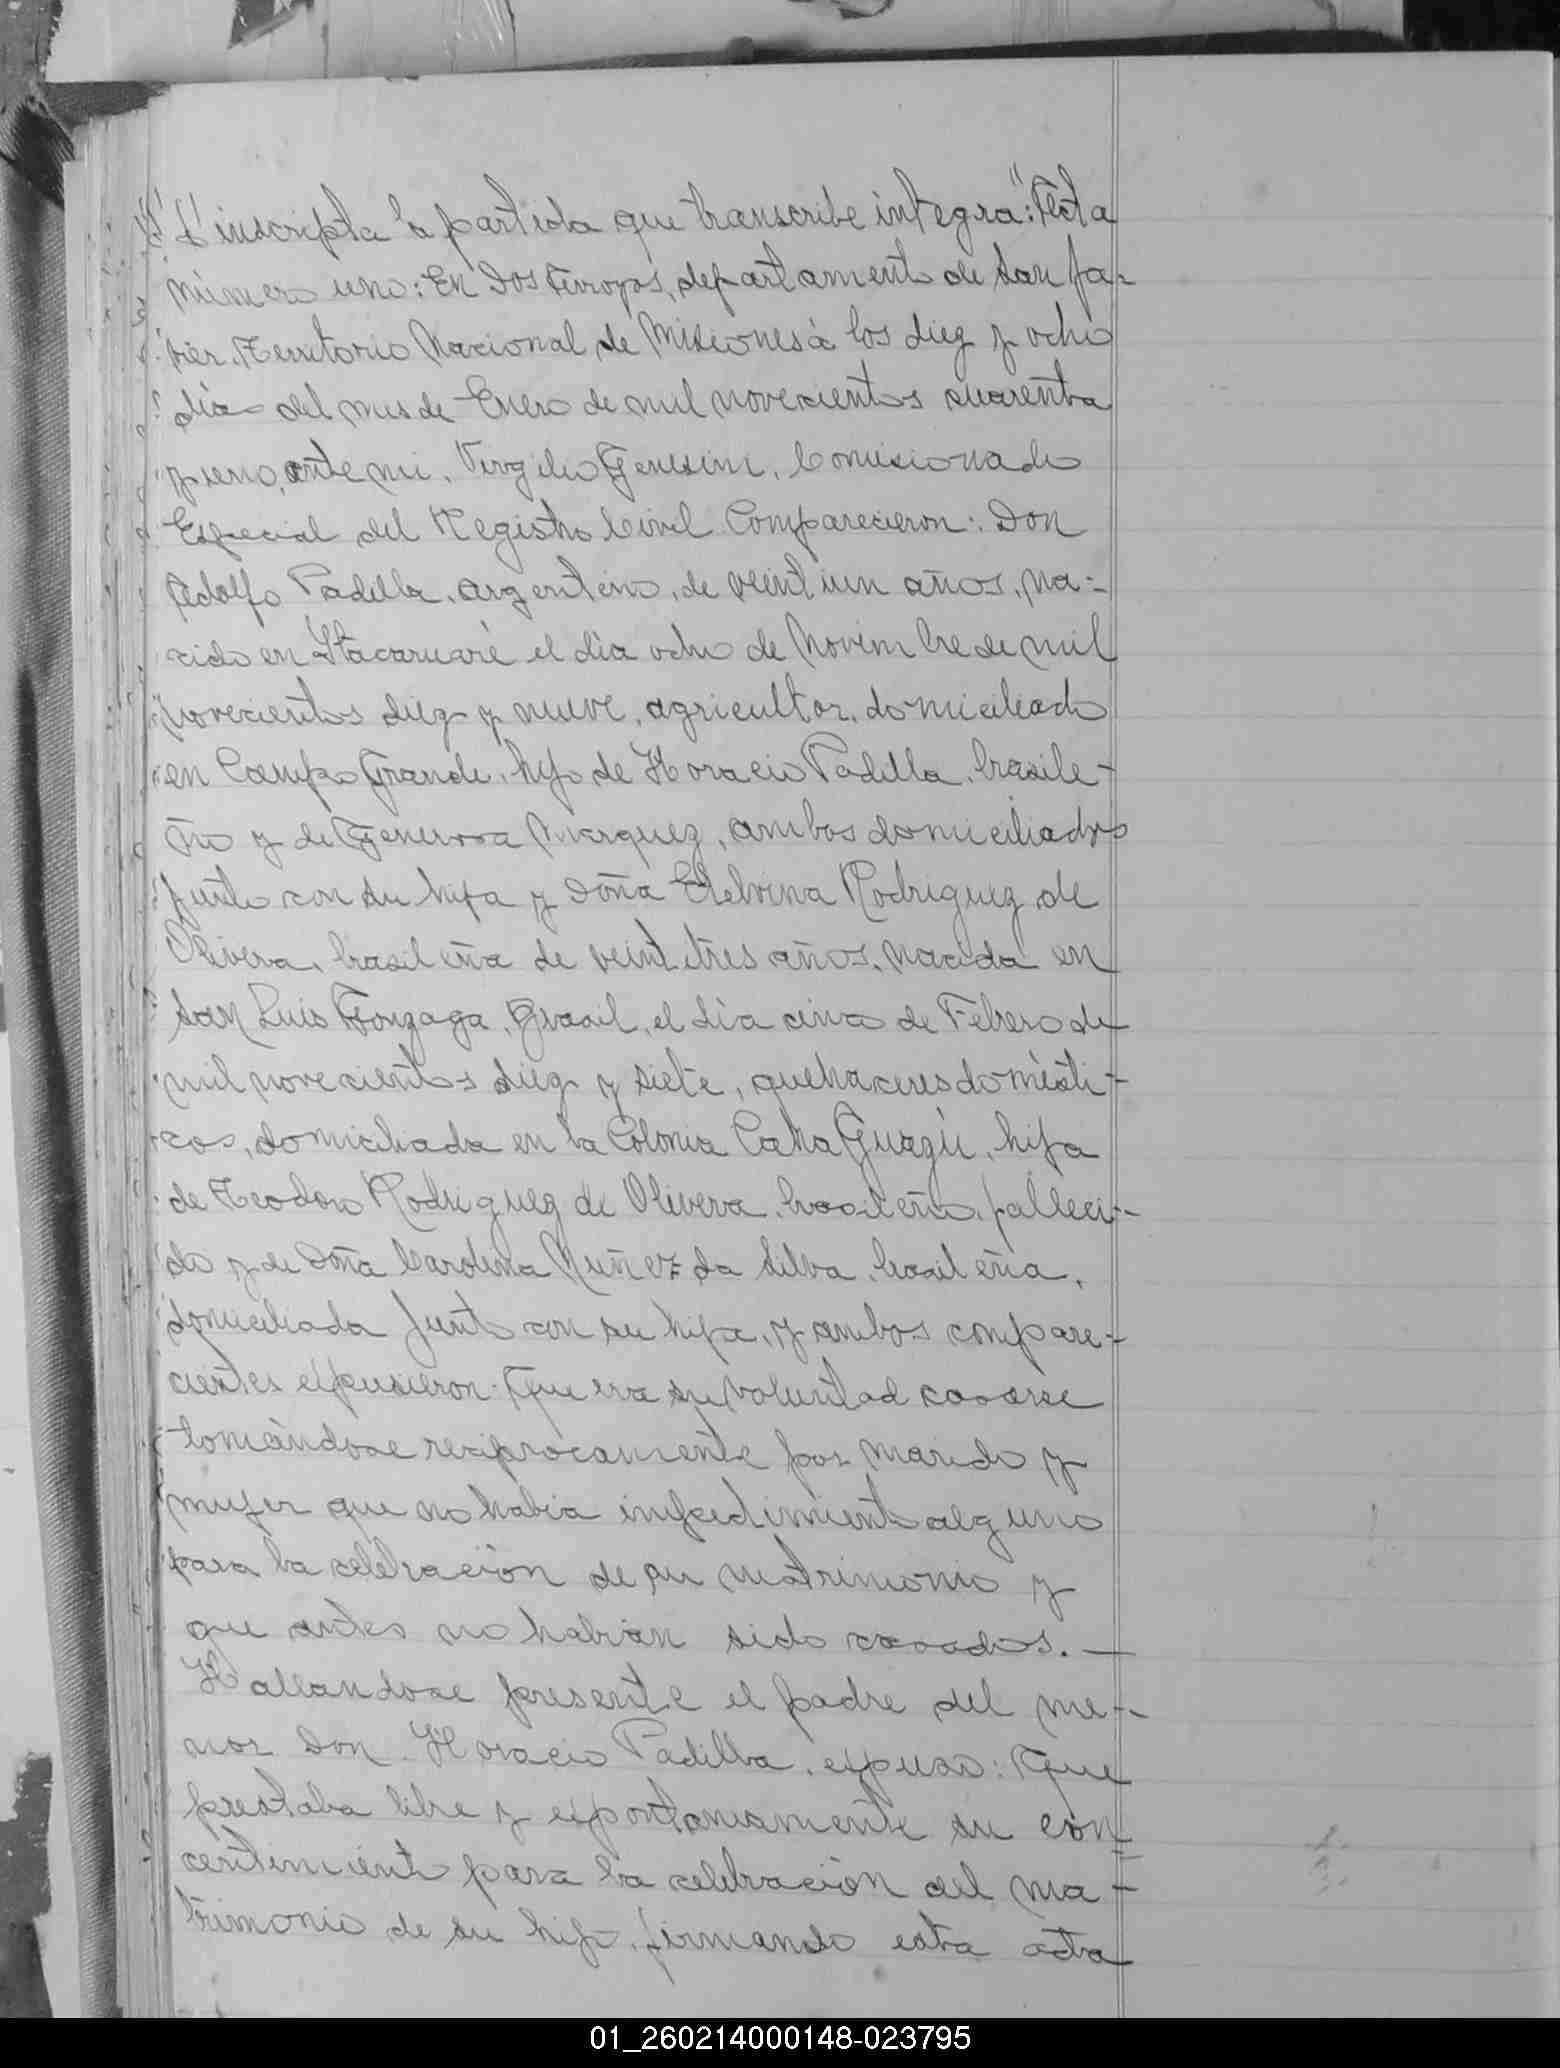 inscripta la partida que transcribe integra: "Acta
número uno: En Dos Arroyos, departamento de San Ja-
vier. Territorio Nacional de Misiones á los diez y ocho
dias del mes de Enero de mil novecientos cuarenta
y uno, ante mi, Virgilio Genesini, Comisionado
Especial del Registro Civil Comparecieron: Don
Adolfo Padilla, argentino, de veintiun años, na-
cido en Itacaruaré el dia ocho de Noviembre de mil
novecientos diez y nueve, agricultor, domiciliado
en Campo Grande, hijo de Horacio Padilla, brasile-
ño y de Generosa Marquez, ambos domiciliados
junto con su hija y Doña Etelvina Rodriguez de
Olivera, brasileña de veintitres años, nacida en
San Luis Gonzaga, Brasil, el dia cinco de Febrero de
mil novecientos diez y siete, quehaceres domésti-
cos, domiciliada en la Colonia Caña Guazú, hija
de Teodoro Rodriguez de Olivera, brasileño, falleci-
do y de Doña Carolina Nuñez da Silva, brasileña,
domiciliada junto con su hija, y ambos compare-
cientes expusieron: Que era su voluntad casarse
tomándose reciprocamente por marido y
mujer que no habia impedimento alguno
para la celebración de su matrimonio y
que antes no habian sido casados. —
Hallandose presente el padre del me-
nor Don Horacio Padilla, expuso: Que
prestaba libre y espontaneamente su con
centimiento para la celebración del ma-
trimonio de su hijo, firmando esta acta
01_260214000148-023795